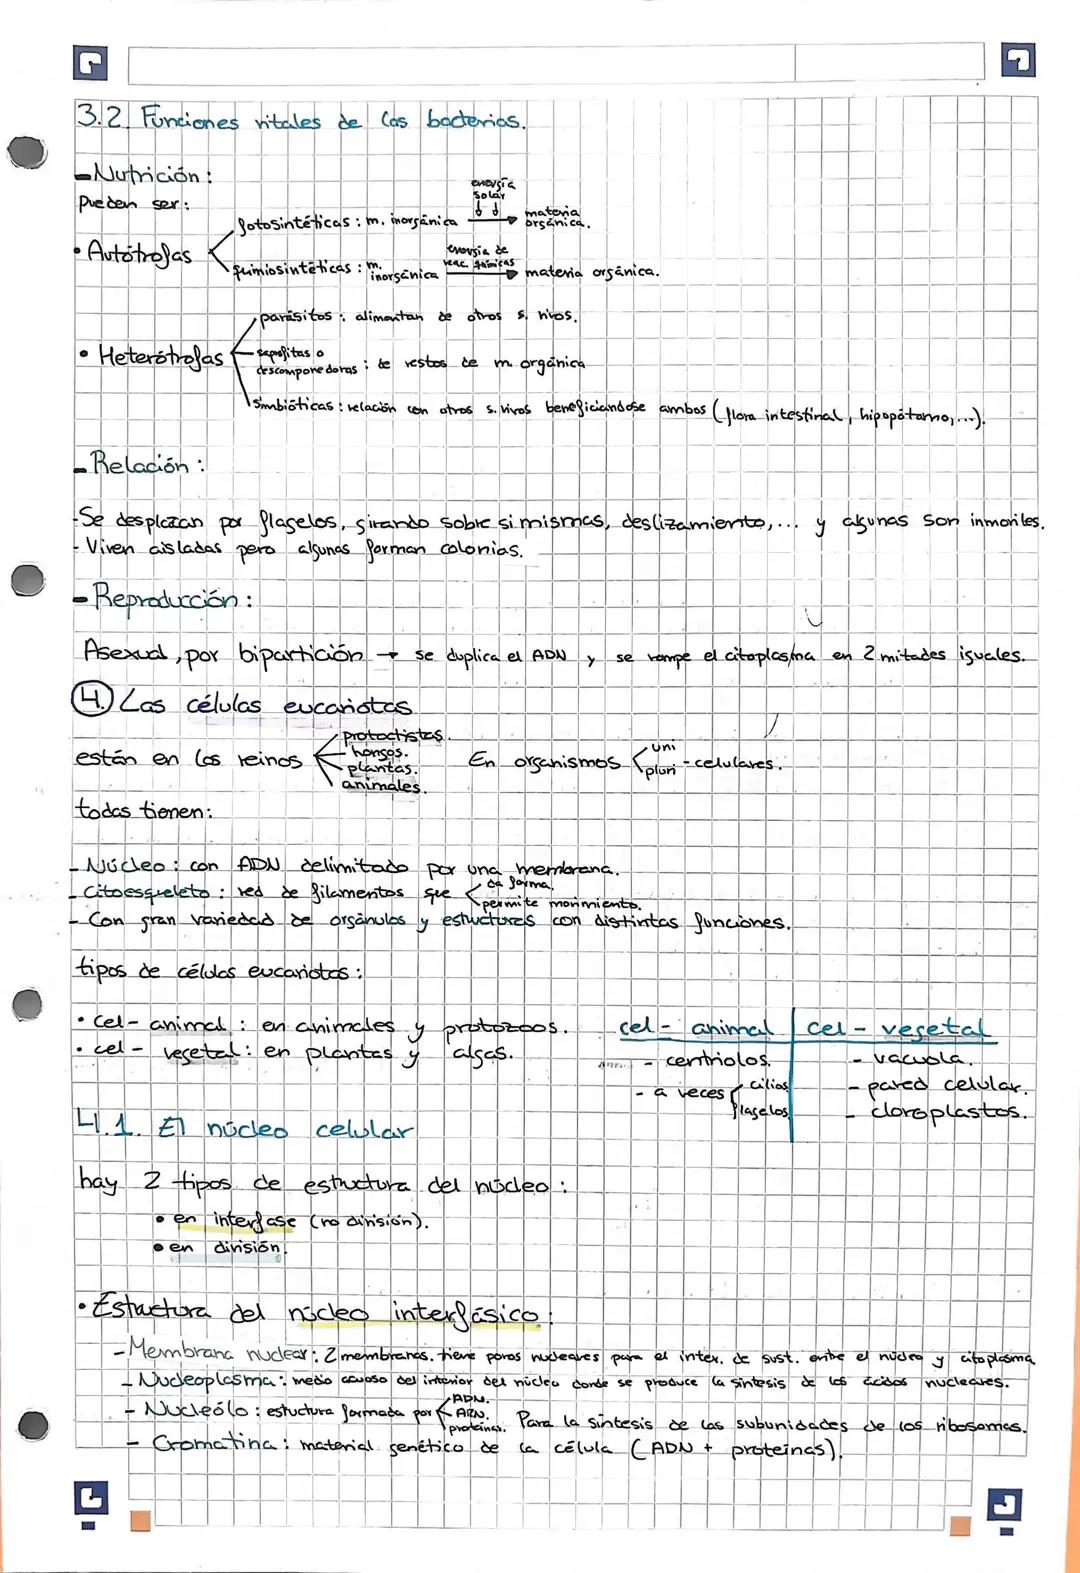 3.2. Funciones vitales de las bacterias.
- Nutrición:
Pueden ser:
• Autótrofas
fotosintéticas: m. inorgánica energía solar materia orgánica.
quimiosintéticas: m. inorgánica energía de reac. químicas materia orgánica.
• Heterótrofas
parásitos: alimentan de otros s. vivos.
saprofitas o descomponedoras: de restos de m. orgánica
simbióticas: relación con otros s. vivos beneficiandose ambos (flora intestinal, hipopótamo,...).
- Relación:
- Se desplazan por flagelos, girando sobre si mismas, deslizamiento,... y algunas son inmoviles.
- Viven aisladas pero algunas forman colonias.
- Reproducción:
Asexual, por bipartición → se duplica el ADN y se rompe el citoplasma en 2 mitades iguales.
4. Las células eucariotas
están en los reinos
protoctistas.
hongos.
plantas.
animales.
En organismos uni pluri - celulares.
todas tienen:
- Núcleo: con ADN delimitado por una membrana.
- Citoesqueleto: red de filamentos que da forma. permite movimiento.
- Con gran variedad de orgánulos y estructuras con distintas funciones.
tipos de células eucariotas:
• cel- animal: en animales y protozoos.
• cel- vegetal: en plantas y algas.
cel- animal cel- vegetal
- centriolos. - vacuola.
- a veces cilios flagelos - pared celular.
- cloroplastos.
4.1. El núcleo celular
hay 2 tipos de estructura del núcleo:
• en interfase (no división).
• en división.
• Estructura del núcleo interfásico:
- Membrana nuclear: 2 membranas. tiene poros nucleares para el inter. de sust. entre el núcleo y citoplasma
- Nucleoplasma: medio acuoso del interior del núcleo donde se produce la síntesis de los ácidos nucleares.
- Nucleólo: estuctura formada por ADN. ARN. proteínas. Para la síntesis de las subunidades de los ribosomas.
- Cromatina: material genético de la célula (ADN + proteínas).